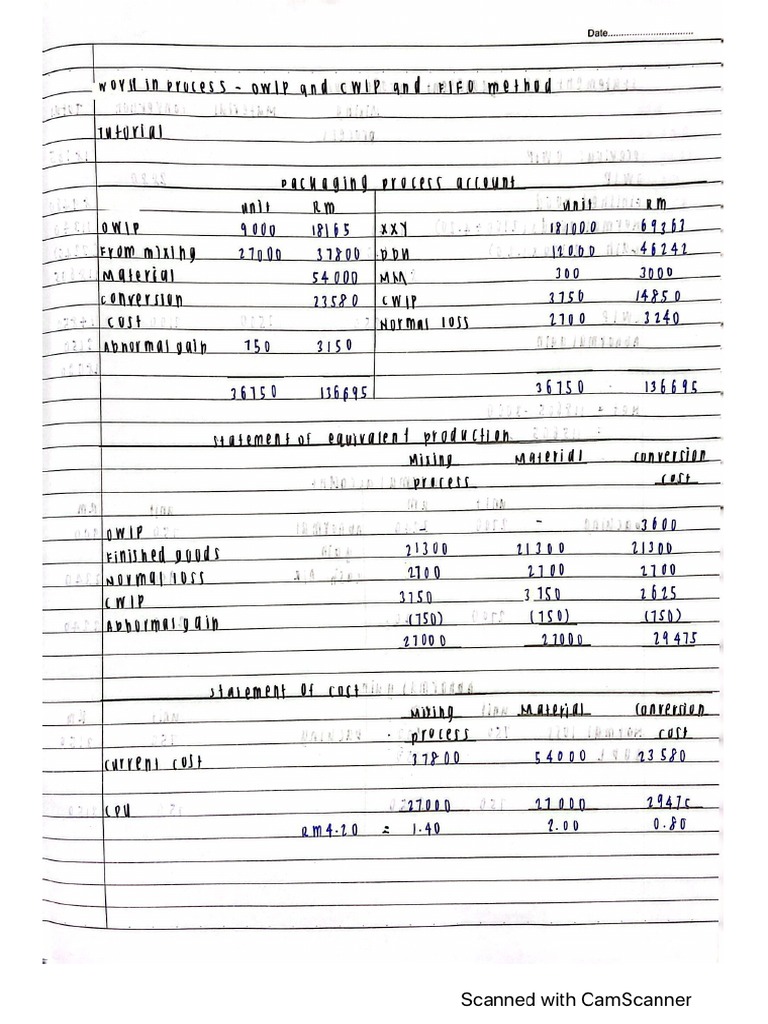 Date..............................
work in process - OWIP and CWIP and FIFO method
Tutorial
packaging process account
unit RM unit RM
OWIP 9000 18165 XXY 18100.0 69363
From mixing 27000 37800 DDN 12000 46242
Material 54000 MM 300 3000
conversion 23580 CWIP 3750 14850
cost Normal loss 2700 3240
Abnormal gain 750 3150
36750 136695 36750 136695
statement of equivalent production
Mixing Material conversion
process cost
OWIP - 3600
Finished goods 21300 21300 21300
Normal loss 2700 2700 2700
CWIP 3750 3750 2625
Abnormal gain (750) (750) (750)
27000 27000 29475
statement of cost
Mixing Material conversion
process cost
current cost 37800 54000 23580
CPU 27000 27000 29475
RM4.20 = 1.40 2.00 0.80
Scanned with CamScanner